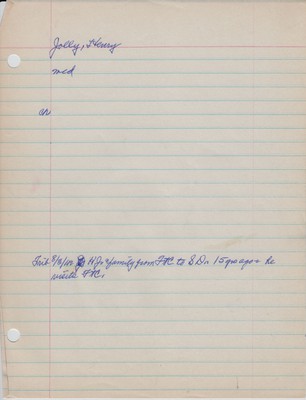 Jolly, Henry
med
ch
Trib 8/8/40 H J & family from FtC to S D. 15 yrs ago & he
visits FtC.